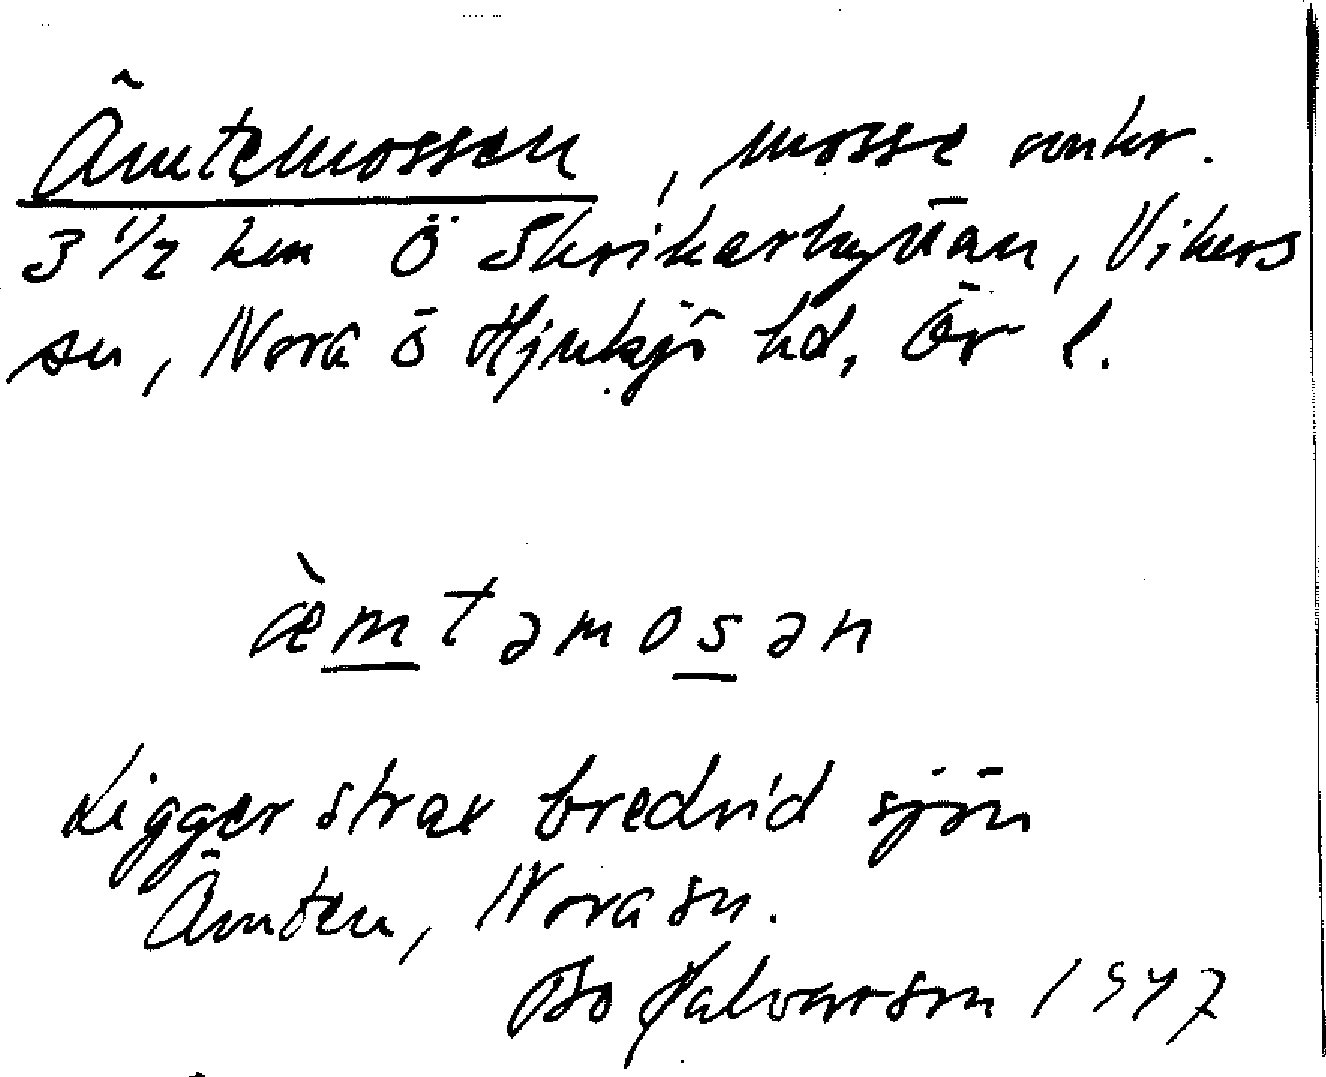 Ämtemossen, mosse omkr.
3 1/2 km Ö Skrikarhyttan, Vikers
sn, Nora o Hjulsjö hd, Ör l.
æ̀mtəmosən
Ligger strax bredvid sjön
Ämten, Nora sn.
Bo Halvarson 1947